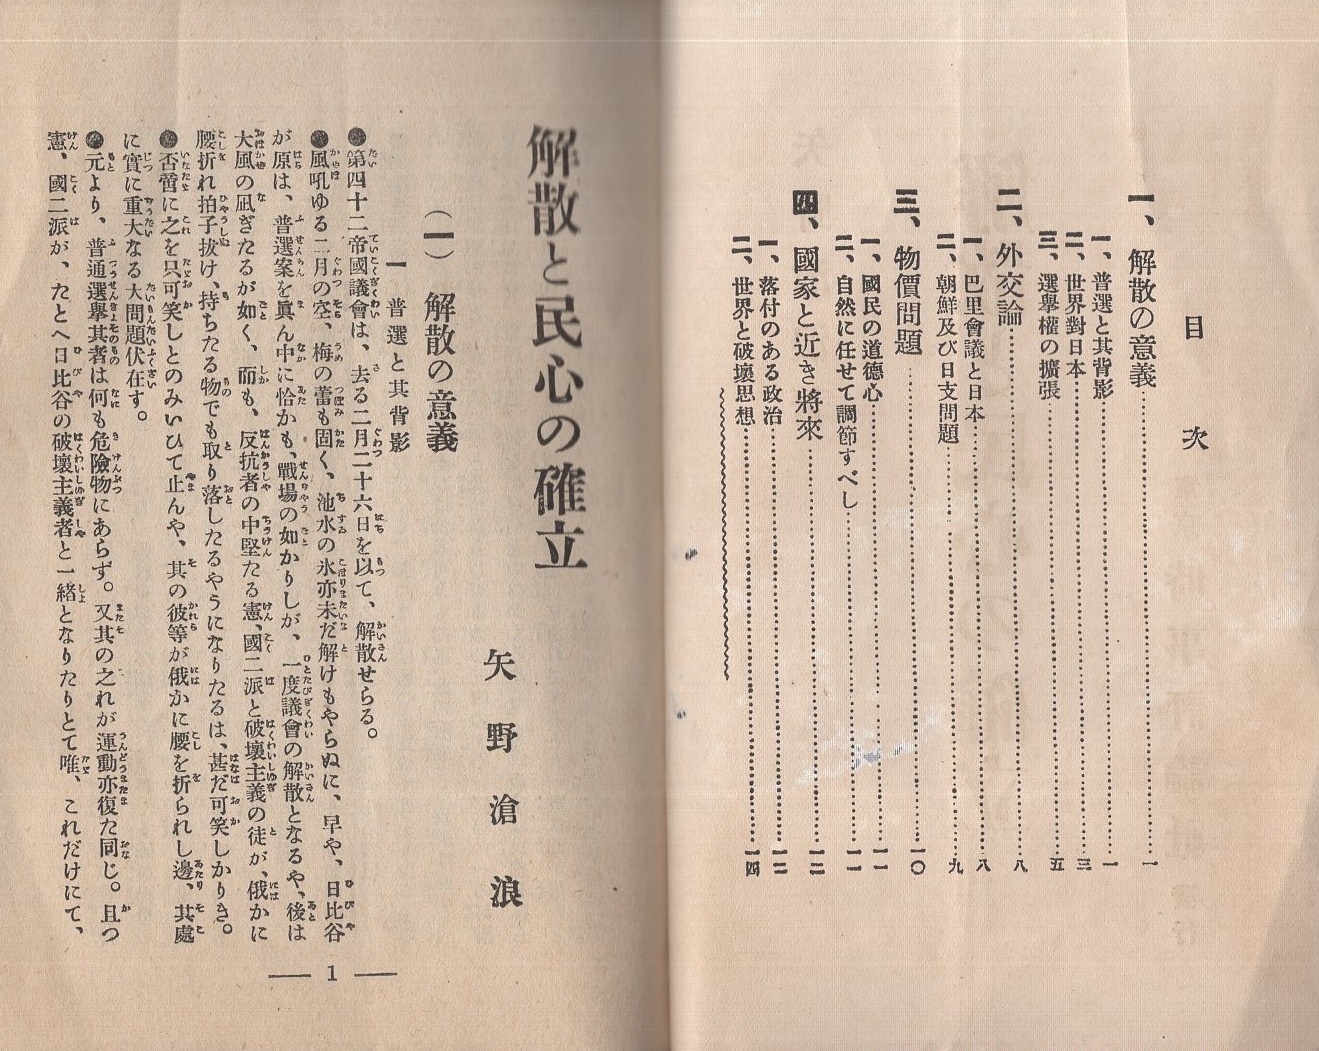 目次
一、解散の意義……一
一、普選と其背影……一
二、世界對日本……三
三、選擧權の擴張……五
二、外交論……八
一、巴里會議と日本……八
二、朝鮮及び日支問題……九
三、物價問題……一〇
一、國民の道德心……一一
二、自然に任せて調節すべし……一一
四、國家と近き將來……一二
一、落付のある政治……一二
二、世界と破壞思想……一四
解散と民心の確立
矢野滄浪
(一) 解散の意義
一 普選と其背影
●第四十二帝國議會は、去る二月二十六日を以て、解散せらる。
●風吼ゆる二月の空、梅の蕾も固く、池水の氷亦未だ解けもやらぬに、早や、日比谷
が原は、普選案を眞ん中に恰かも、戰場の如かりしが、一度議會の解散となるや、後は
大風の凪ぎたるが如く、而も、反抗者の中堅たる憲、國二派と破壞主義の徒が、俄かに
腰折れ拍子拔け、持ちたる物でも取り落したるやうになりたるは、甚だ可笑しかりき。
●否啻に之を只可笑しとのみいひて止んや、其の彼等が俄かに腰を折られし邊、其處
に實に重大なる大問題伏在す。
●元より、普通選擧其者は何も危險物にあらず。又其の之れが運動亦復た同じ。且つ
憲、國二派が、たとへ日比谷の破壞主義者と一緖となりたりとて唯、これだけにて、
1